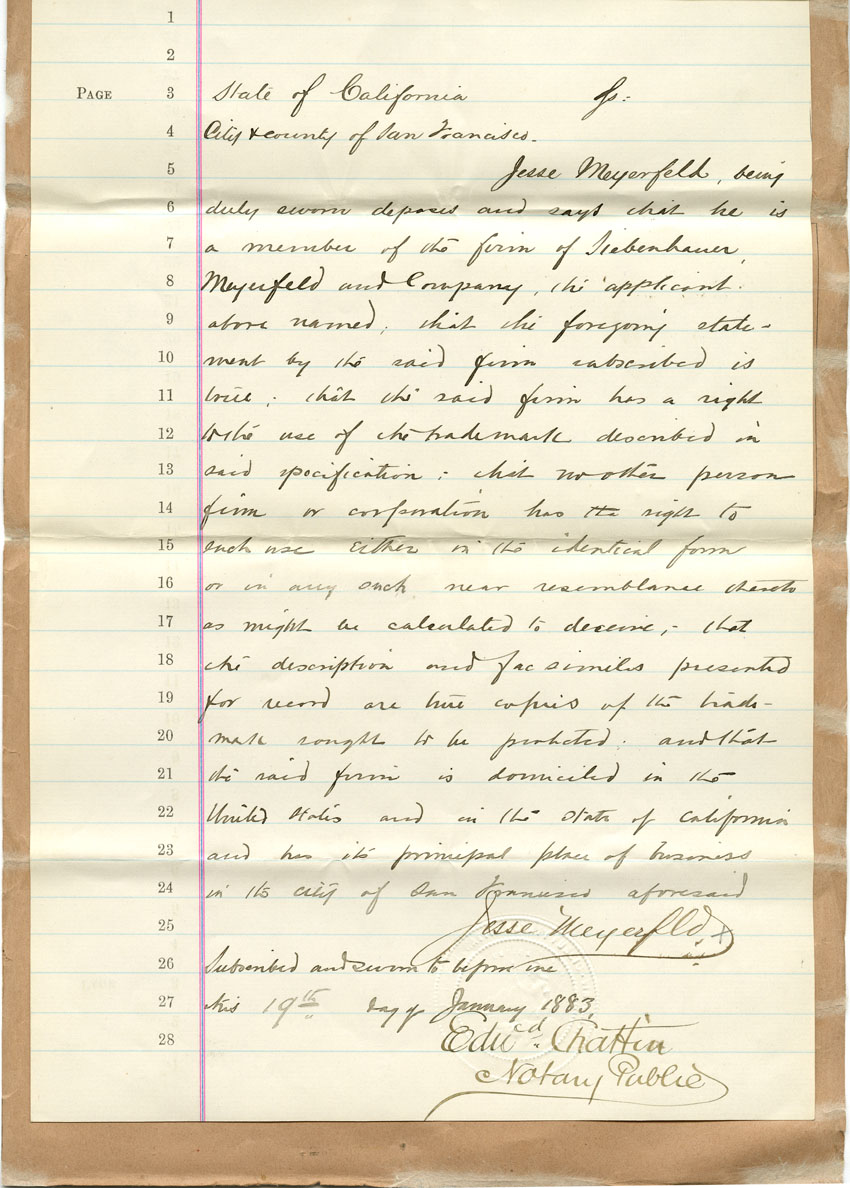 1
2
PAGE 3 State of California ss:
4 City & county of San Francisco.
5 Jesse Meyerfeld, being
6 duly sworn deposes and says that he is
7 a member of the firm of Siebenhauer,
8 Meyerfeld and Company, the applicant
9 above named; that the foregoing state-
10 ment by the said firm subscribed is
11 true; that the said firm has a right
12 to the use of the trademark described in
13 said specification; that no other person
14 firm or corporation has the right to
15 such use either in the identical form
16 or in any such near resemblance thereto
17 as might be calculated to deceive; that
18 the description and facsimiles presented
19 for record are true copies of the trade-
20 mark sought to be protected; and that
21 the said firm is domiciled in the
22 United States and in the State of California
23 and has its principal place of business
24 in the city of San Francisco aforesaid
25 Jesse Meyerfeld
26 Subscribed and sworn to before me
27 this 19th day of January 1883,
28 Edwd. Chattin
Notary Public